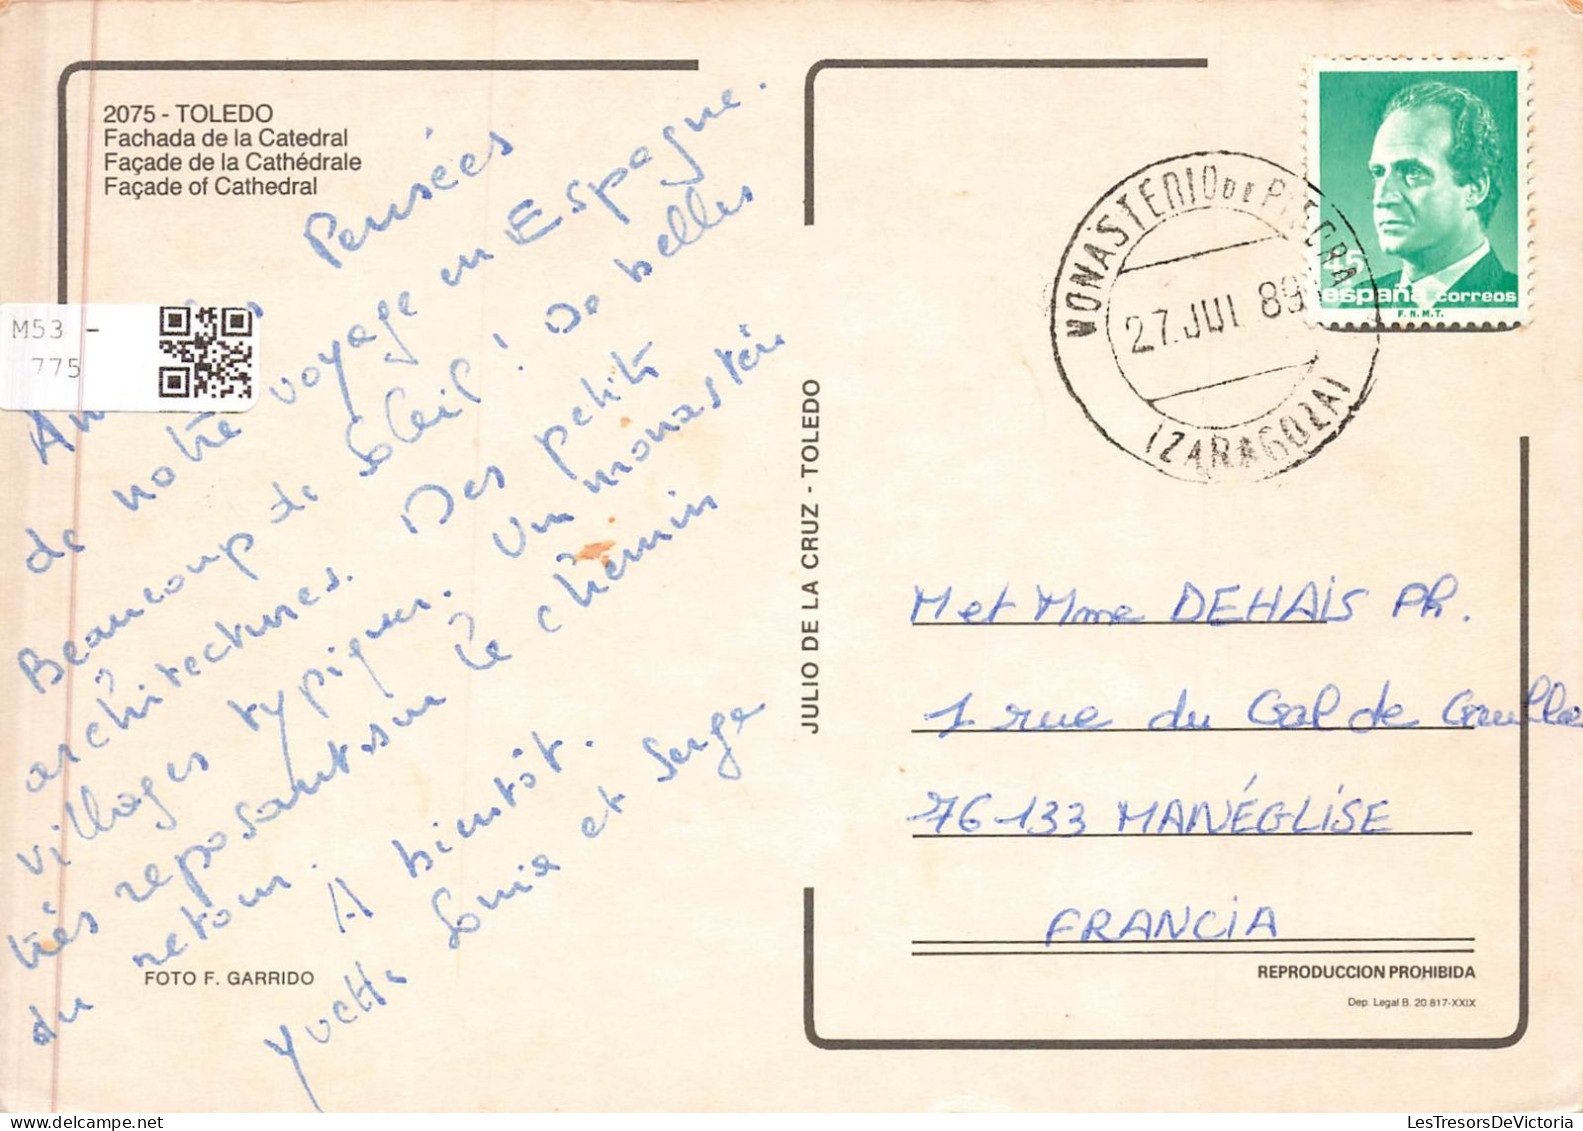 2075 - TOLEDO
Fachada de la Catedral
Façade de la Cathédrale
Façade of Cathedral
M53 -
775
Pensées
de notre voyage en Espagne.
Beaucoup de soleil! De belles
architectures. Des petits
villages typiques. Un monastère
très reposant sur le chemin
du retour.
A bientôt.
Yvette Sonia et Serge
FOTO F. GARRIDO
JULIO DE LA CRUZ - TOLEDO
MONASTERIO DE PIEDRA
27. JUL 89
(ZARAGOZA)
45
españa correos
F.N.M.T.
M et Mme DEHAIS Ph.
1 rue du Gal de Gaulle
76133 MANÉGLISE
FRANCIA
REPRODUCCION PROHIBIDA
Dep. Legal B. 20.817-XXIX
LesTresorsDeVictoria.com